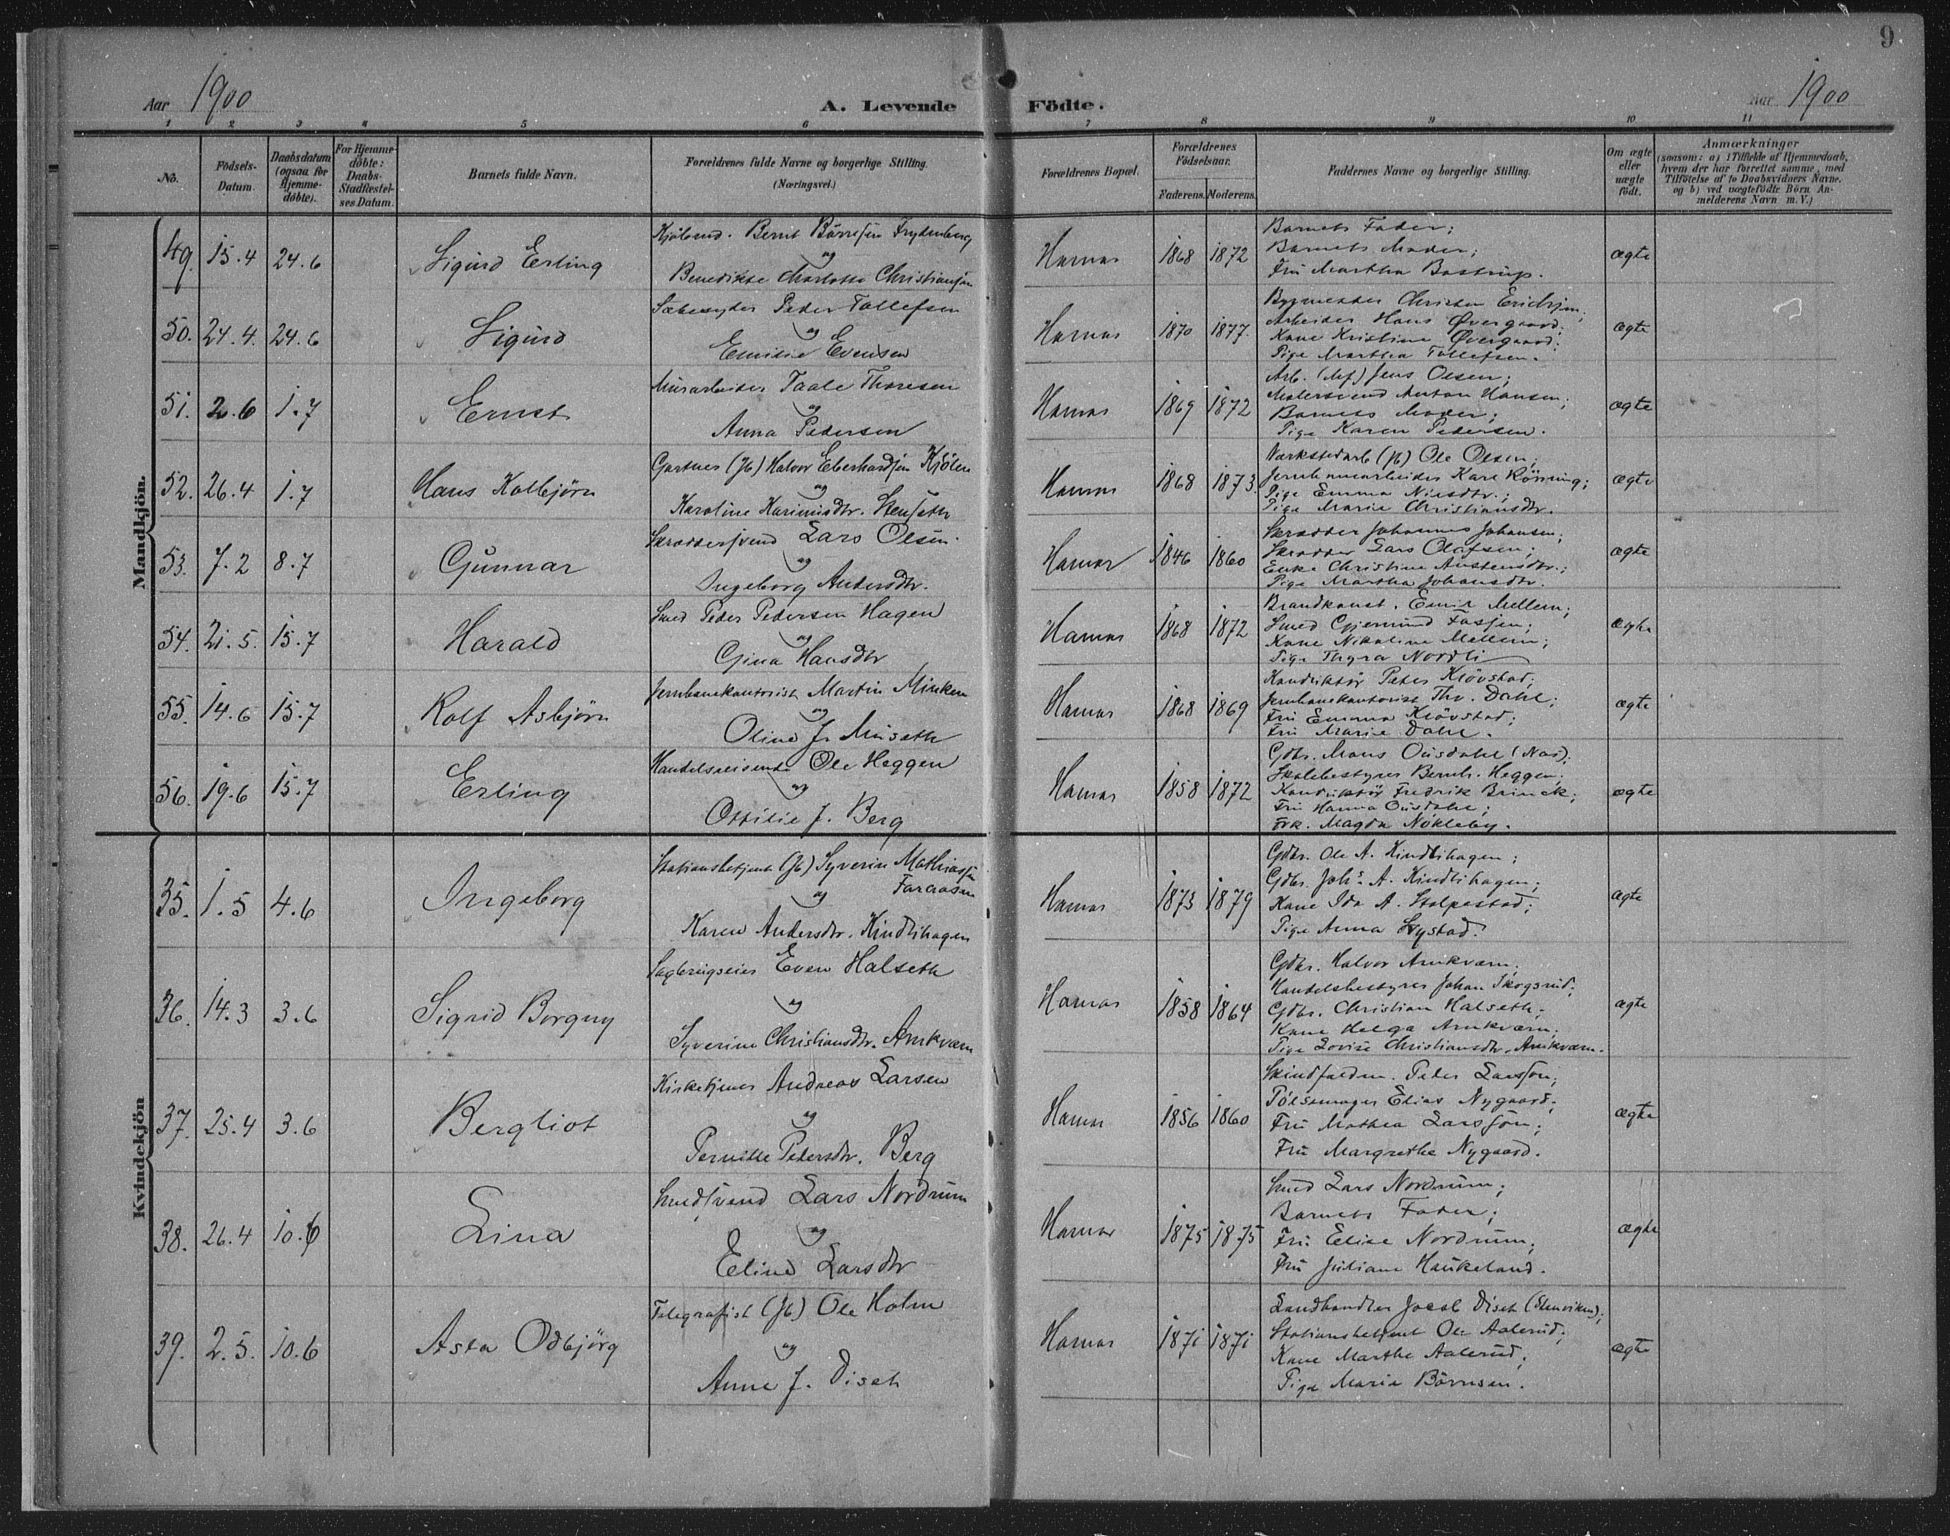 9
Aar 1900
A. Levende Födte.
Aar 1900
1 2 3 4 5 6 7 8 9 10 11
No.
Födsels-Datum.
Daabsdatum (ogsaa for Hjemmedöbte).
For Hjemmedöbte: Daabs-Stadfæstelses Datum.
Barnets fulde Navn.
Forældrenes fulde Navne og borgerlige Stilling. (Næringsvei.)
Forældrenes Bopæl.
Forældrenes Födselsaar.
Faderens. Moderens.
Faddernes Navne og borgerlige Stilling.
Om ægte eller uægte födt.
Anmærkninger
(saasom: a) i Tilfælde af Hjemmedaab, hvem der har forrettet samme, med Tilföielse af to Daabsvidners Navne, og b) ved uægtefödte Börn Anmelderens Navn m. V.)
Mandkjön.
49. 15.4 24.6 Sigurd Erling
Bernt Börresen Frydenberg
og
Benedikte Charlotte Christiansen
Hamar 1868 1872
Barnets Fader;
Barnets Moder;
Fru Martha Bastrup.
ægte
50. 24.4. 24.6 Sigurd
Sæbesyder Peder Tollefsen
og
Emilie Evensen
Hamar 1870 1877.
Bygmester Christen Ericksen;
Arbeider Hans Øvergaard;
Kone Kristine Øvergaard;
Pige Martha Tollefsen.
ægte
51. 2.6 1.7 Ernst
Murarbeider Taale Thoresen
og
Anna Pedersen
Hamar 1869 1872
Arb. Jens Olsen;
Malersvend Anton Hansen;
Barnets Moder;
Pige Karen Pedersen.
ægte
52. 26.4 1.7 Hans Kolbjörn
Gartner (Jb) Halvor Eberhardsen Kjölen
og
Karoline Karinusdtr. Stenseth
Hamar 1868 1873.
Værkstedarb (Jb) Ole Olsen;
Jernbanearbeider Karl Rönning;
Pige Emma Nilsdtr.;
Pige Marie Christiansdtr.
ægte
53. 7.2 8.7 Gunnar
Skræddersvend Lars Olsen.
og
Ingeborg Andersdtr.
Hamar 1846 1860
Skrædder Johannes Johansen;
Skrædder Lars Olafsen;
Enke Christine Austensdtr.;
Pige Martha Johansdtr.
ægte
54. 21.5. 15.7 Harald
Smed Peder Pedersen Hagen
og
Gina Hansdtr
Hamar 1868 1872
Brandkonst. Emil Mellem;
Smed Gjermund
Kone Nikoline Mellem;
Pige Thyra Nordli
ægte
55. 14.6 15.7 Rolf Asbjörn
Jernbanekontorist Martin Minken
og
Oline J. Museth
Hamar 1868 1869
Konduktör Peter Klövstad;
Jernbanekontorist Thv. Dahl;
Fru Emma Klövstad;
Fru Marie Dahl.
ægte
56. 19.6 15.7 Erling
Handelsreisende Ole Heggen
og
Ottilie J. Berg
Hamar 1858 1872
Gdbr. Mons Ousdahl (Næs);
Skolebestyrer Bernh. Heggen;
Konduktör Fredrik Brinck;
Fru Hanna Ousdahl;
Frk. Magda Nökleby.
ægte
Kvindekjön
35. 1.5 4.6 Ingeborg
Stationsbetjent (Jb) Syverin Mathiassen Faraasen
og
Karen Andersdtr. Kindlihagen
Hamar 1873 1879
Gdbr. Ole A. Kindlihagen;
Gdbr. Johs. A. Kindlihagen;
Kone Ida A. Stolpestad;
Pige Anna Lystad.
ægte
36. 14.3 3.6 Sigrid Borgny
Sagbrugseier Even Halseth
og
Syverine Christiansdtr. Arnkværn
Hamar 1858 1864
Gdbr. Halvor Arnkværn;
Handelsbestyrer Johan Skogsrud;
Gdbr. Christian Halseth;
Kone Helga Arnkværn;
Pige Lovise Christiansdtr. Arnkværn.
ægte
37. 25.4 3.6 Bergliot
Kirketjener Andreas Larsen
og
Pernille Pedersdtr. Berg
Hamar 1856 1860
Peder Larssön;
Pölsemager Elias Nygaard;
Fru Mathea Larssön;
Fru Margrethe Nygaard.
ægte
38. 26.4 10.6 Lina
Smedsvend Lars Nordrum
og
Eline Larsdtr
Hamar 1875 1875
Smed Lars Nordrum;
Barnets Fader;
Fru Elise Nordrum;
Fru Juliane Haukeland.
ægte
39. 2.5. 10.6 Asta Odbjörg
Telegrafist (Jb) Ole Holm
og
Anne J. Diset
Hamar 1871 1871
Landhandler Jacob Diset
Stationsbetjent Ole Aalerud;
Kone Marthe Aalerud;
Pige Maria Börresen.
ægte